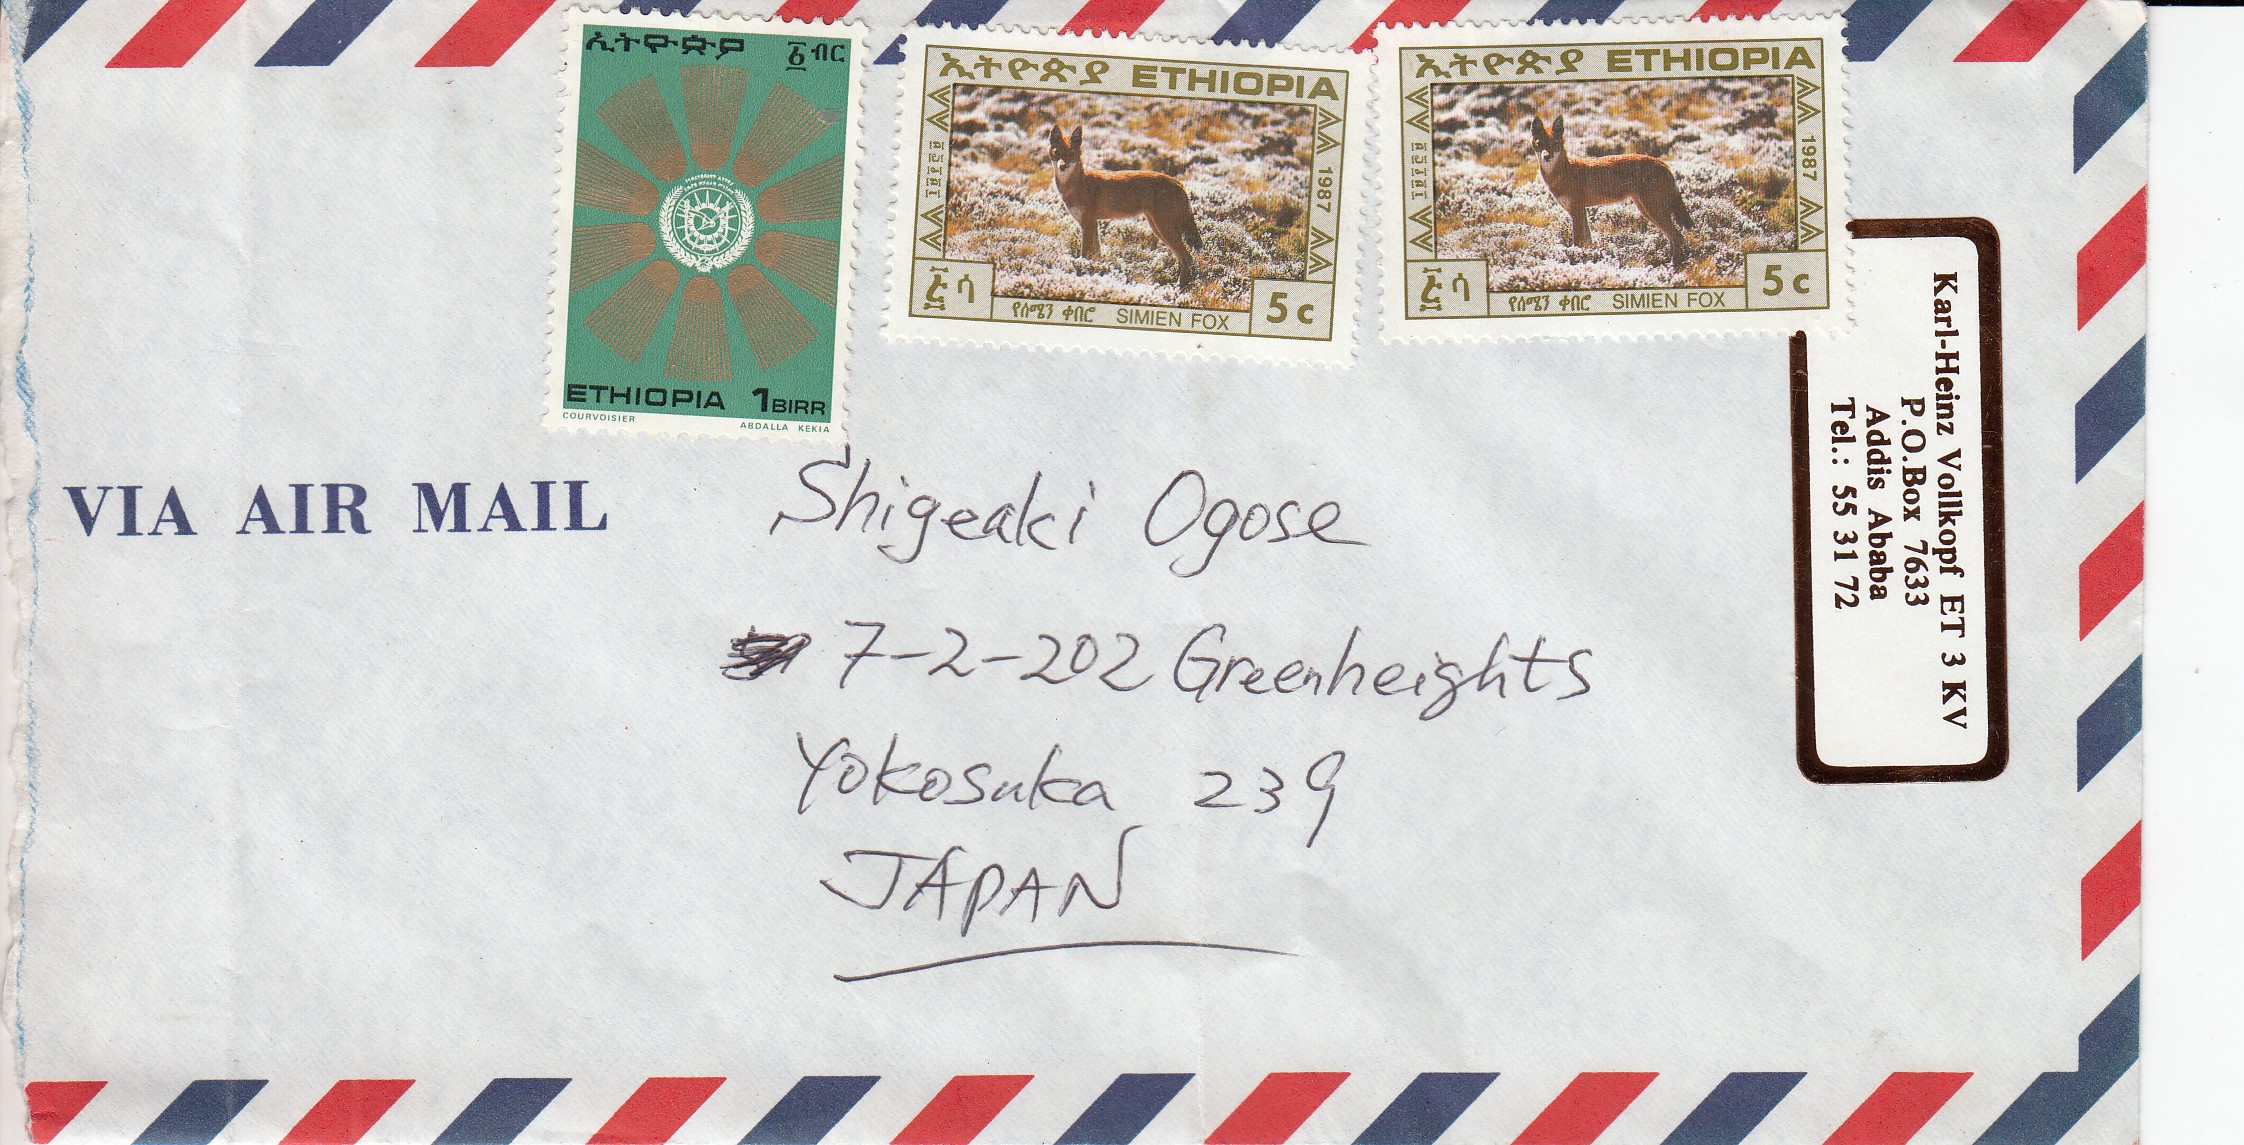 ኢትዮጵያ ፩ ብር
ETHIOPIA 1 BIRR
COURVOISIER ABDALLA KEKIA
ኢትዮጵያ ETHIOPIA
1987
፭ ሳ
የሰሜን ቀበሮ SIMIEN FOX
5c
ኢትዮጵያ ETHIOPIA
1987
፭ ሳ
የሰሜን ቀበሮ SIMIEN FOX
5c
Karl-Heinz Vollkopf ET 3 KV
P.O.Box 7633
Addis Ababa
Tel.: 55 31 72
VIA AIR MAIL
Shigeaki Ogose
7-2-202 Greenheights
Yokosuka 239
JAPAN